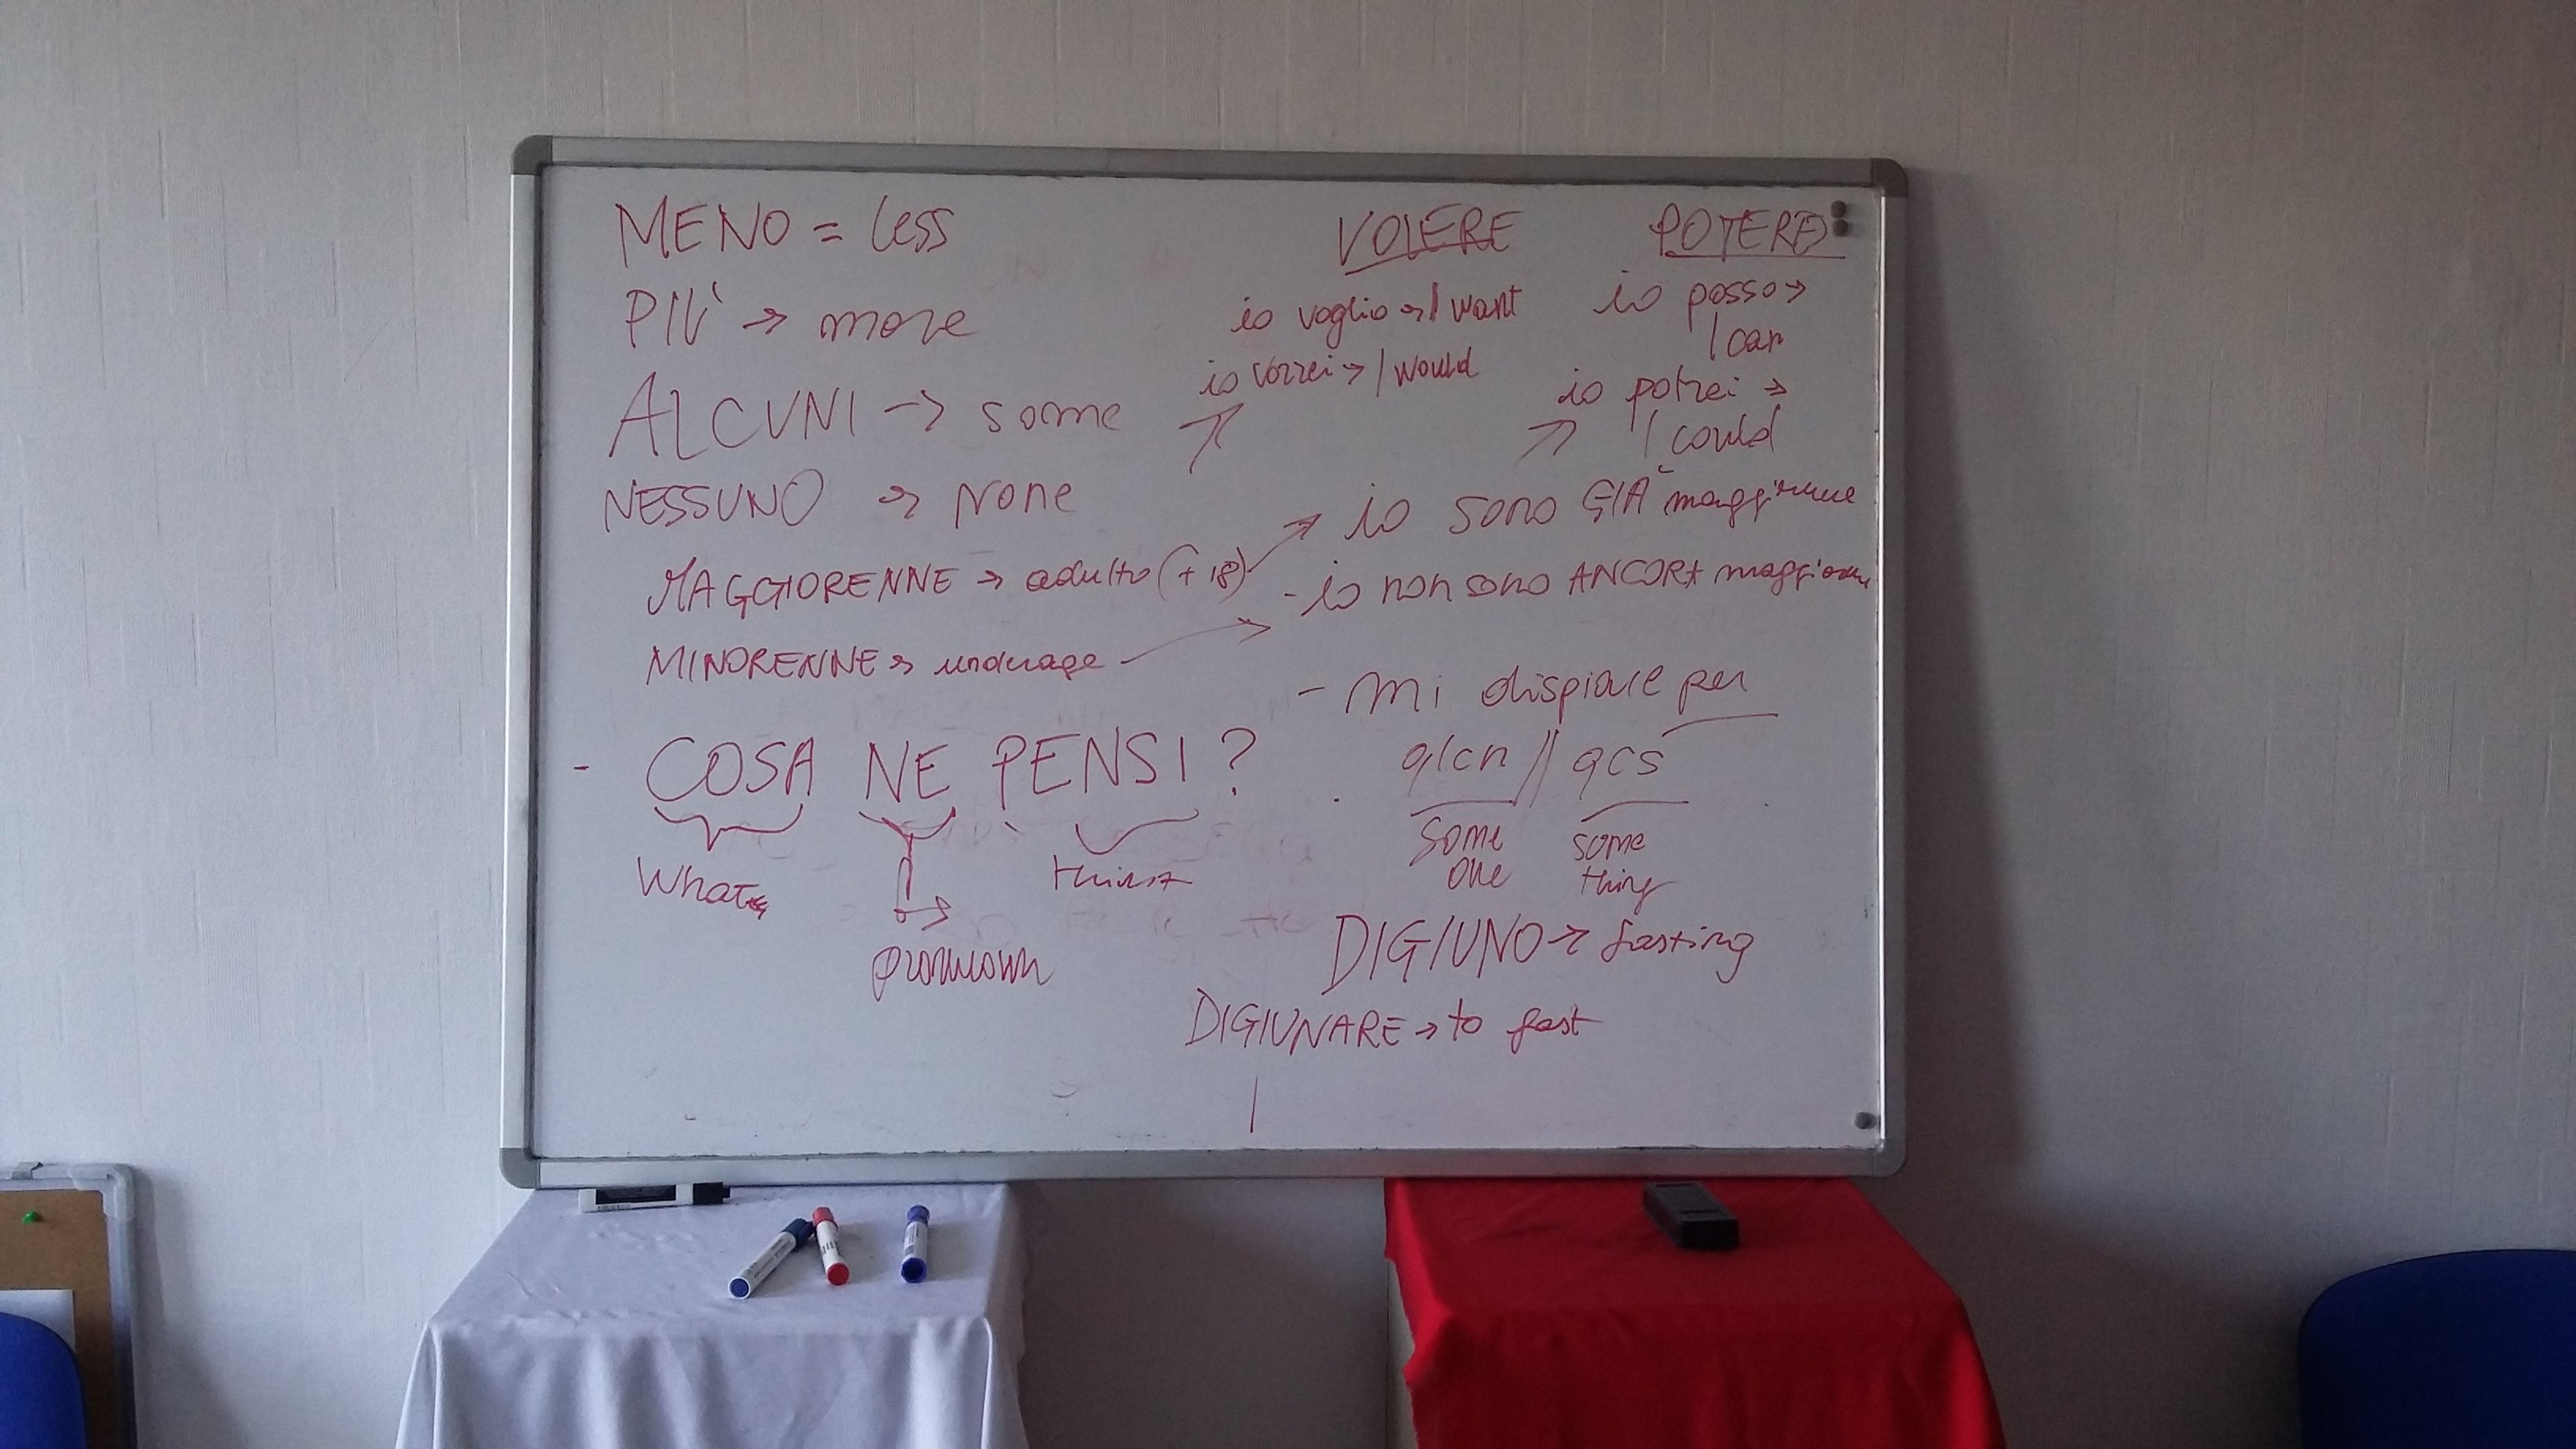 MENO = less
PIÙ → more
ALCUNI → some
NESSUNO → None
MAGGIORENNE → adulto (+18)
MINORENNE → underage
- COSA NE PENSI ?
What
think
pronoun
VOLERE
io voglio → I want
io vorrei → I would
POTERE
io posso →
I can
io potrei →
I could
io sono GIÀ maggiorenne
- io non sono ANCORA maggiorenne
- mi dispiace per
qlcn // qcs
some
one
some
thing
DIGIUNO → fasting
DIGIUNARE → to fast